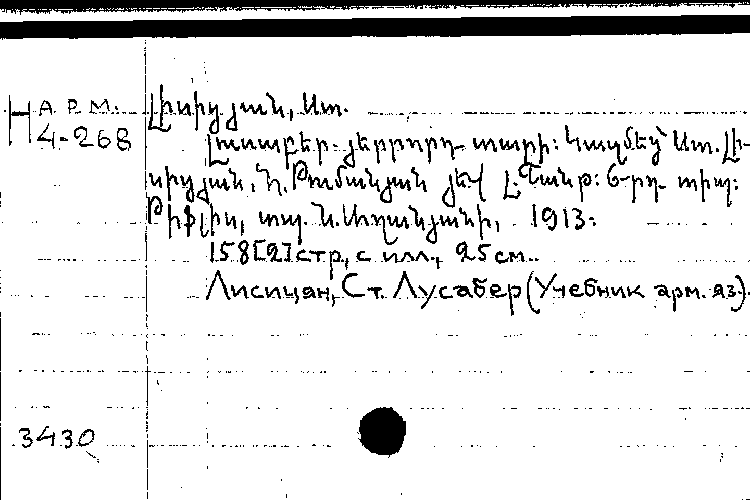 АРМ. Լիսիցյան, Ստ.
Н 4-268
Լուսաբեր. յերրորդ տարի: Կազմեց Ստ. Լի-
սիցյան, Հ. Թումանյան յեվ Լ. Շանթ: 6-րդ տիպ:
Թիֆլիս, տպ. Ն. Աղանյանի, 1913:
158[2] стр., с илл., 25 см.
Лисицян, Ст. Лусабер (Учебник арм. яз.).
3430